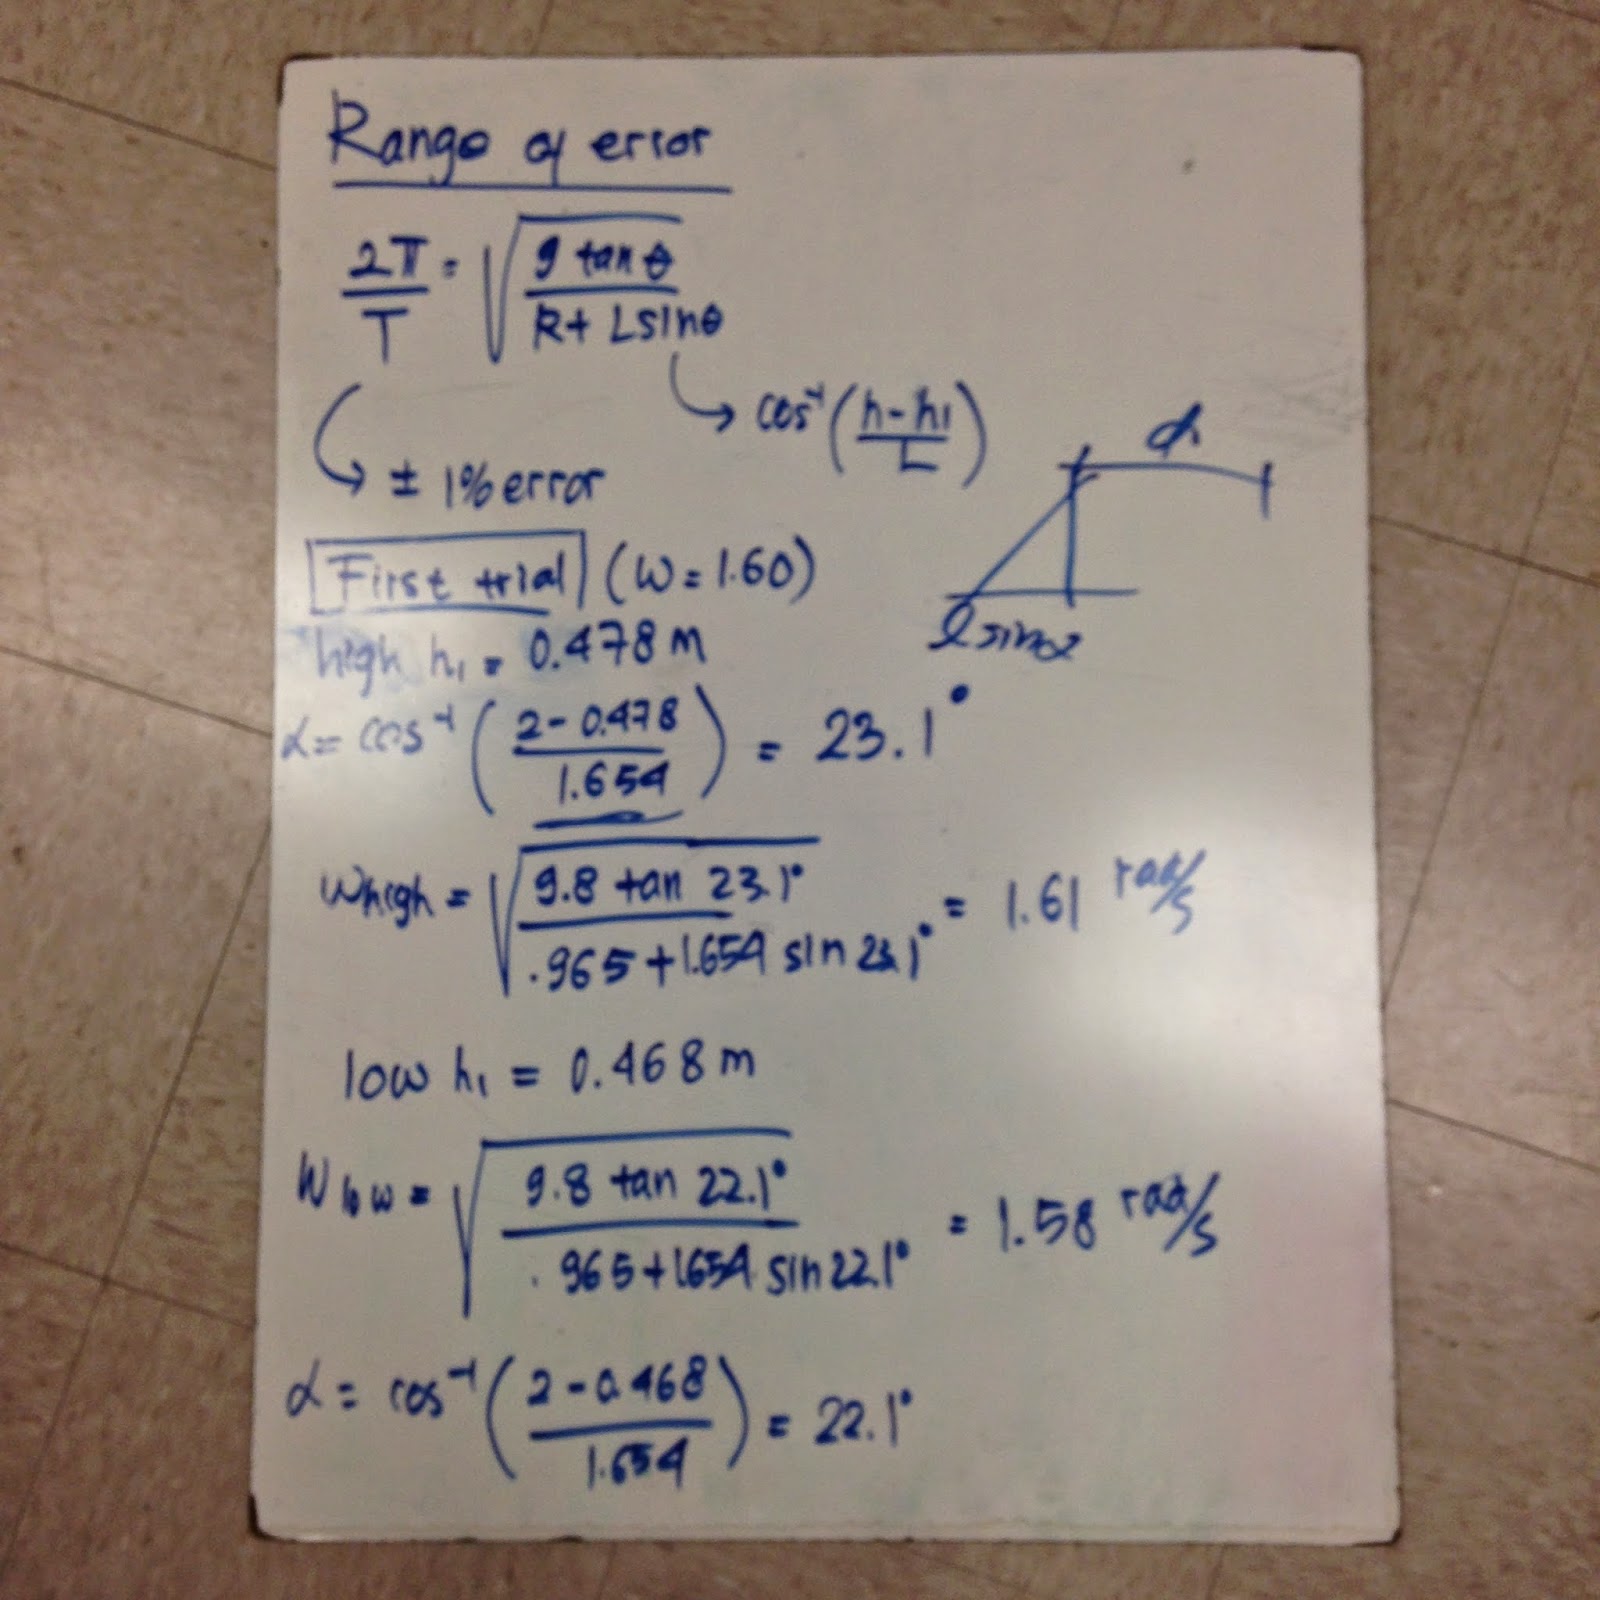 Range of error
2π/T = √(g tan θ / R + L sin θ)
cos⁻¹ (h - h₁ / L)
± 1% error
d
l sin α
First trial (ω = 1.60)
high h₁ = 0.478 m
α = cos⁻¹ (2 - 0.478 / 1.654) = 23.1°
ωhigh = √(9.8 tan 23.1° / .965 + 1.654 sin 23.1°) = 1.61 rad/s
low h₁ = 0.468 m
ωlow = √(9.8 tan 22.1° / .965 + 1.654 sin 22.1°) = 1.58 rad/s
α = cos⁻¹ (2 - 0.468 / 1.654) = 22.1°